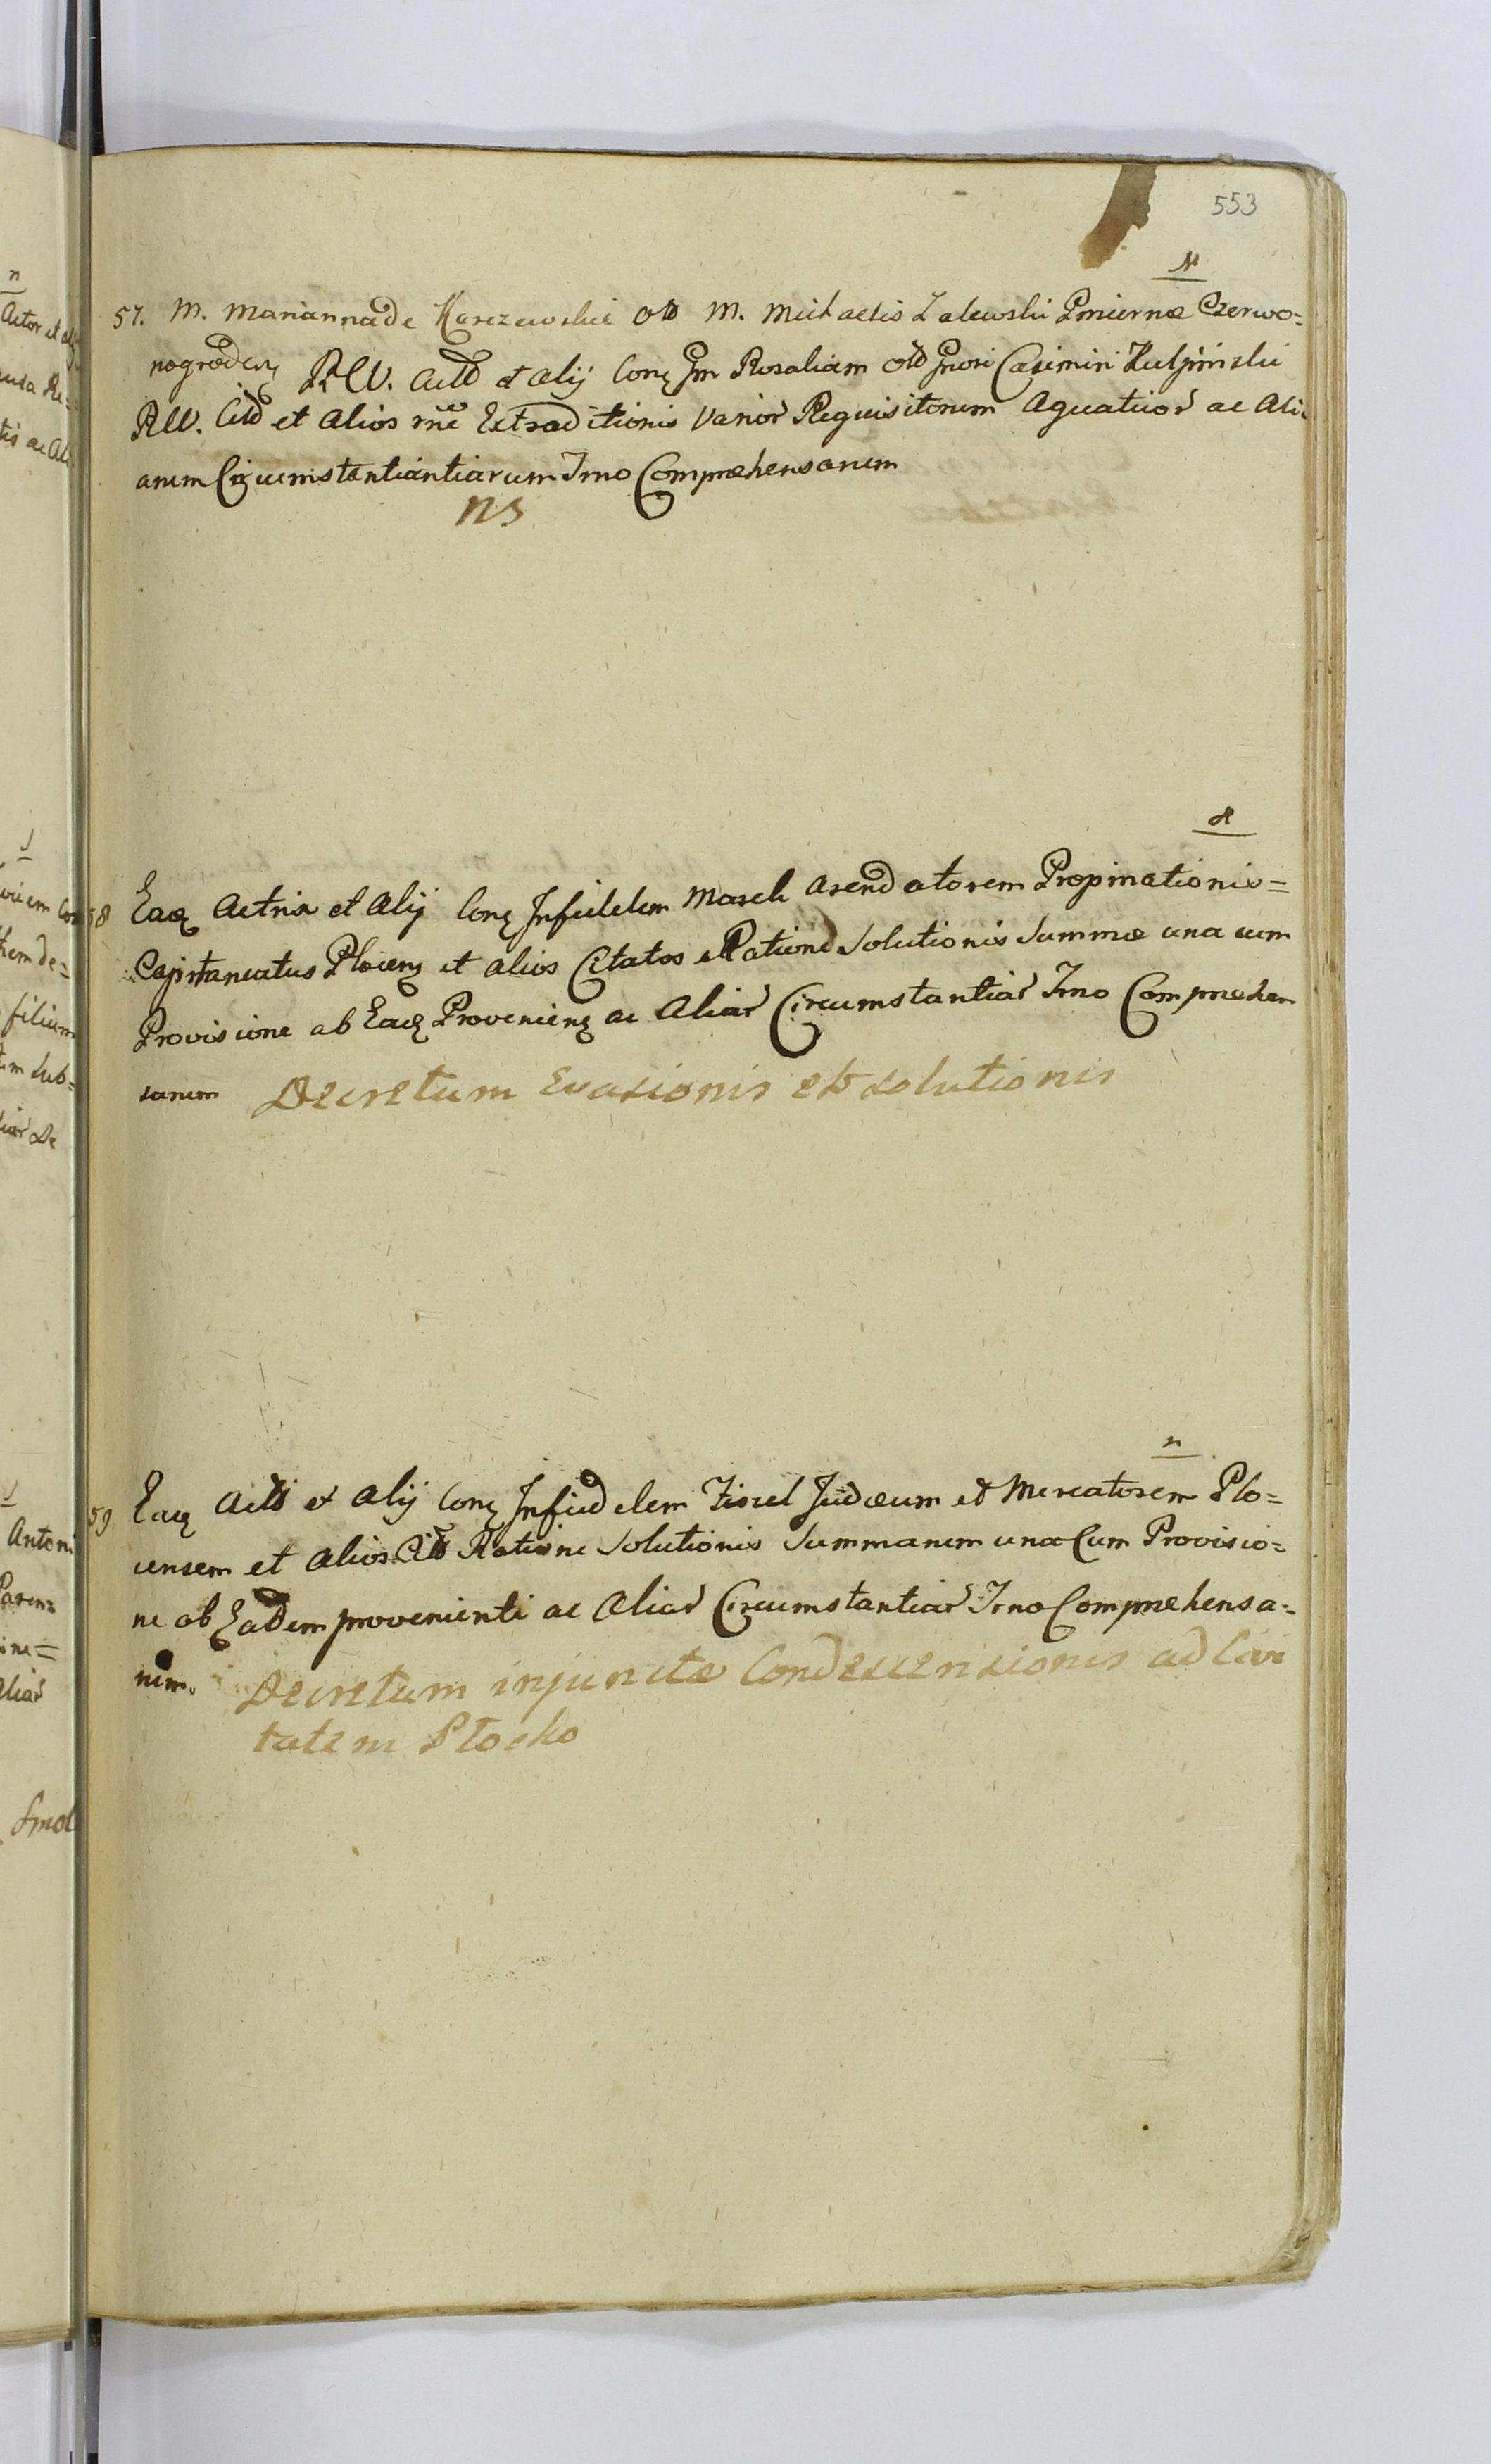 553
N
57. M. Marianna de Karczewskie Olb M. Michaelis Zalewski Pmiernæ Czerwo=
nogroden, RW. Actb et alij Conq Jm Rosaliam olb Gnosi Casimiri Kulpinski
RW. Citb et alios rne Extraditionis Varior Requisitorum Aquatuor ac Ali
arum Circumstantiantiarum Jrno Compræhensarum
NS
58 Eaq Actrix et alij Conq Infidelem Mosch Arendatorem Propinationis=
Capitaneatus Plocens et alios Citatos Ratione Solutionis Summæ una cum
Provisione ab Eaq Provenienq ac Aliar Circumstantiar Jrno Compræhen
sarum Decretum Evasionis et Solutionis
n
59 Eaq Actb et alij Conq Infidelem Zisiel Judæum et Mercatorem Plo=
censem et alios Citb Ratione Solutionis Summarum una Cum Provisio=
ne ab Eadem provenienti ac Aliar Circumstantiar Jrno Compræhensa=
rum. Decretum injunctæ Condescensionis ad Civi
tatem Plocko